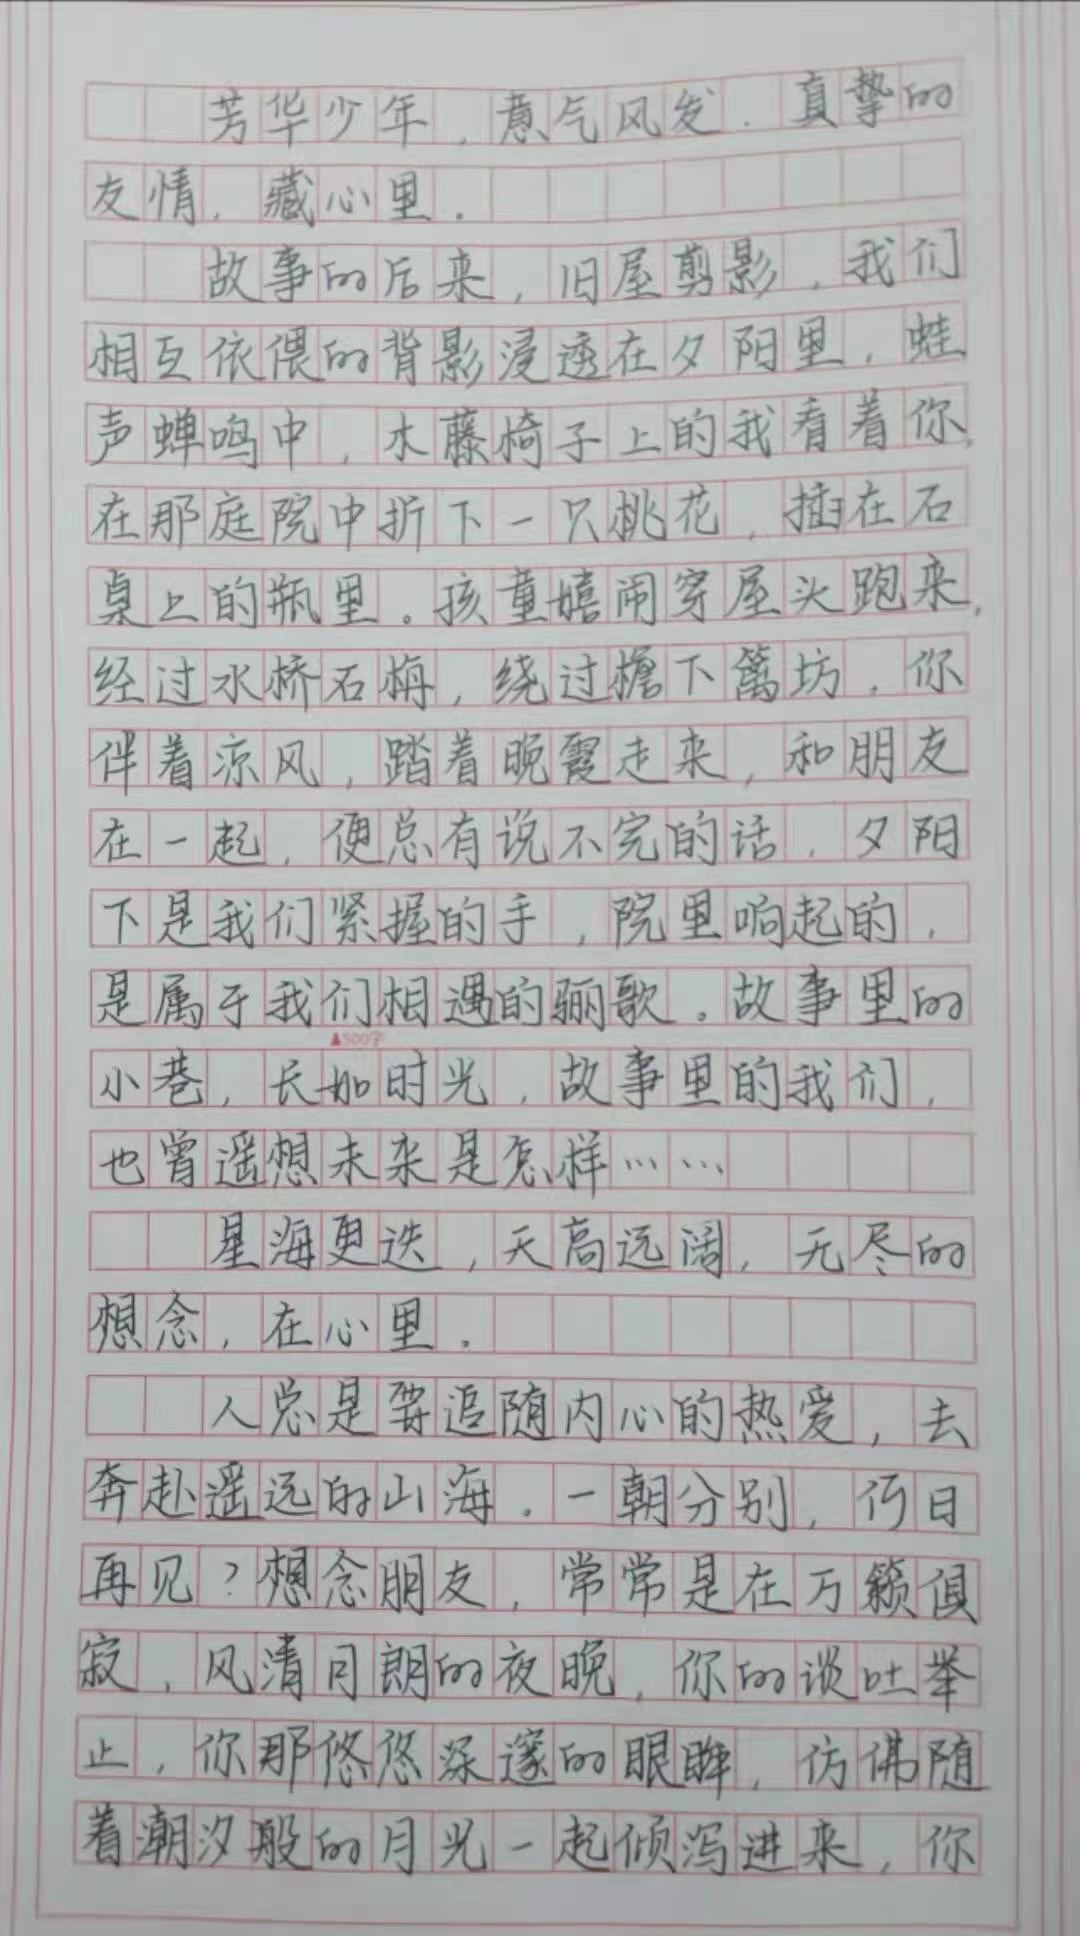 芳华少年，意气风发．真挚的
友情，藏心里．
故事的后来，旧屋剪影，我们
相互依偎的背影浸透在夕阳里，蛙
声蝉鸣中，木藤椅子上的我看着你，
在那庭院中折下一只桃花，插在石
桌上的瓶里。孩童嬉闹穿屋头跑来，
经过水桥石梅，绕过檐下篱坊，你
伴着凉风，踏着晚霞走来，和朋友
在一起，便总有说不完的话．夕阳
下是我们紧握的手，院里响起的，
是属于我们相遇的骊歌。故事里的
▲500字
小巷，长如时光，故事里的我们，
也曾遥想未来是怎样……
星海更迭，天高远阔，无尽的
想念，在心里．
人总是要追随内心的热爱，去
奔赴遥远的山海．一朝分别，何日
再见？想念朋友，常常是在万籁俱
寂，风清月朗的夜晚，你的谈吐举
止，你那悠悠深邃的眼眸，仿佛随
着潮汐般的月光一起倾泻进来，你